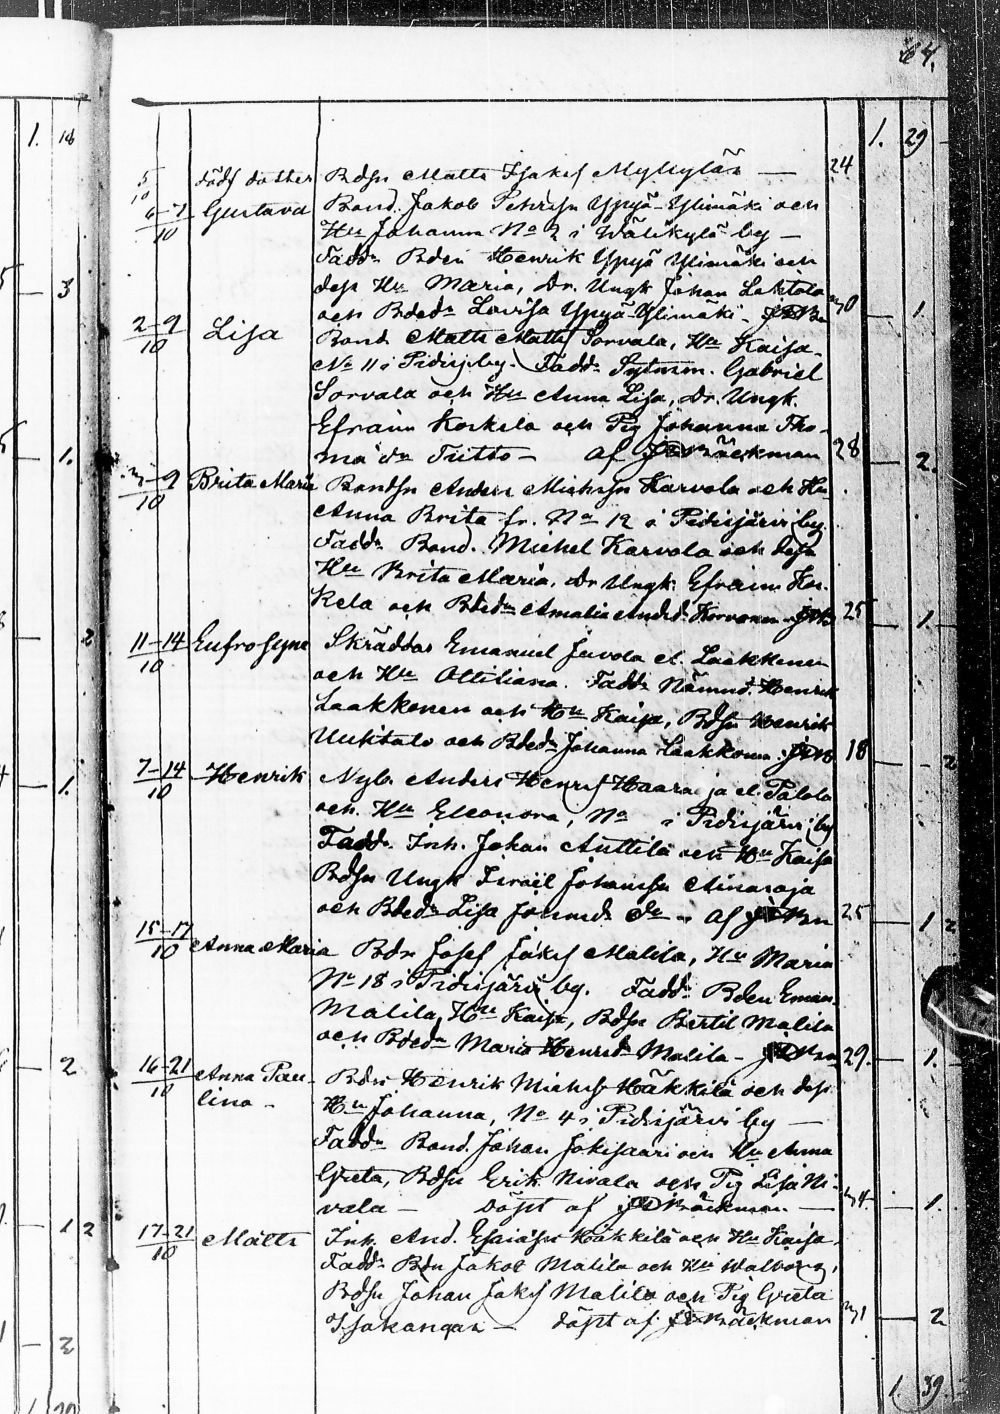 64.
1. 29
5/10 född dotter Bdsn Matts Isaksf Myllylän — 24
6–7/10 Gustava Bond. Jakob Petrisn Yppyä Ylimäki och
Hu Johanna No 2 i Wälikylä by —
Faddr Bden Henrik Yppyä Ylimäki och
dess Hu Maria, Dr. Ungk Johan Laktola
och Bdedr Lovisa Yppyä Ylimäki – 30 — 1.
2–9/10 Lisa Bond Matts Matts Sorvala, Hu Kaisa
No 11 i Pidisj. by. Faddr Sytnm. Gabriel
Sorvala och Hu Anna Lisa, Dr. Ungk.
Efraim Koskela och Pig Johanna Tho-
ma dr Tutto – af JD Bäckman 28 — 2.
3–9/10 Brita Maria Bondsn Anders Michelsn Karvola och Hu
Anna Brita fr. No 12 i Pidisjärvi by.
Faddr Bond. Michel Karvola och dess
Hu Brita Maria, Dr Ungk. Efraim Kos-
kela och Bdedr Amalia Andsdr Korvonen 25 — 1.
11–14/10 Eufrosyne Skräddar Emanuel Juvola el. Laakkonen
och Hu Ottiliana. Faddr Nämnd. Henrik
Laakkonen och Hu Kaisa, Bdsn Henrik
Uuktalo och Bdedr Johanna Laakkonen 18 — 2
7–14/10 Henrik Nyb. Anders Henrsf Haaraoja el. Palola
och Hu Eleonora, No i Pidisjärvi by
Faddr. Inh. Johan Anttila och Hu Kaisa
Bdsn Ungk Israël Johansn Ainasoja
och Bdedr Lisa Johnsdr do – af JD Bn 25 — 1 2
15–17/10 Anna Maria Bdn Josef Jakf Malila, Hu Maria
No 18 i Pidisjärvi by. Faddr Bden Eman.
Malila, Hu Kaisa, Bdsn Bertil Malila
och Bdedr Maria Henrdr Malila – 29. — 1.
16–21/10 Anna Pau- Bdn Henrik Michsf Häkkilä och dess
lina – Hu Johanna, No 4 i Pidisjärvi by —
Faddr Bond. Johan Jokisaari och Hu Anna
Greta, Bdsn Erik Nivala och Pig Lisa Ni-
vala – Döpt af JD Bäckman — 34 — 1.
17–21/10 Matts Inh. And. Esaiasn Häkkilä och Hu Kaisa.
Faddr Bdn Jakob Malila och Hu Walborg,
Bdsn Johan Jakf Malila och Pig Greta
Isakangas — döpt af JD Bäckman 31 — 2
1. 39.